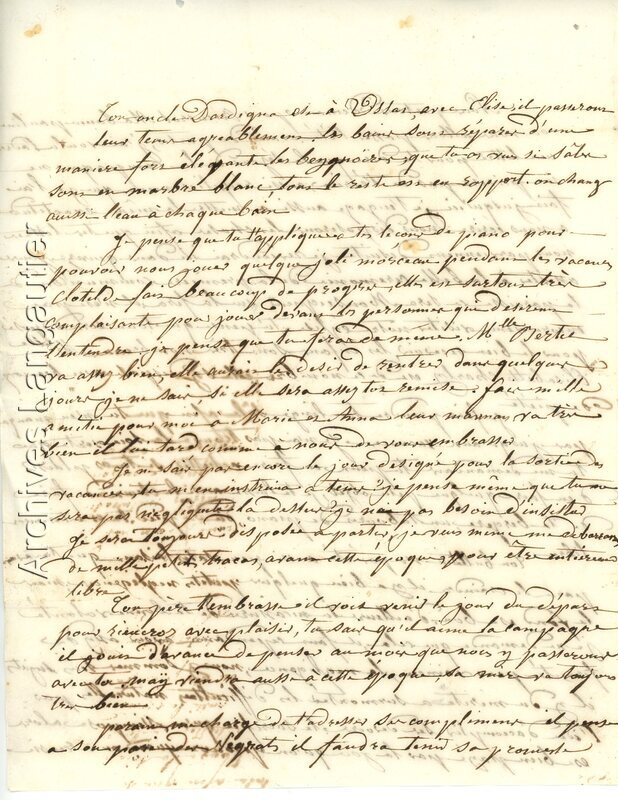 Ton oncle Dardigna est à Ussat, avec Elise, il passeront
leur tems agreablement les bains sont réparés d'une
maniere fort élégante les beygnöires, que tu as vus si sâles
sont en marbre blanc, tout le reste est en rapport. on change
aussi l'eau à chaque bain
Je pense que tu t'appliques à tes lecons de piano pour
pouvoir nous jouer quelque joli morceau pendant les vacances
Clotilde fait beaucoup de progres, elle est surtout très
complaisante pour jouer devant les personnes que desirent
l'entendre je pense que tu feras de même. Mlle Bertie
va assez bien, elle aurait le désir de rentrer dans quelques
jours je ne sais, si elle sera assez tot remise. fais mille
amitié pour moi à Marie et Anna leur maman va très
bien il lui tard comme à nous de vous embrasser
Je ne sais pas encore le jour désigné pour la sortie des
vacances tu m'en instruira à tems je pense même que tu ne
sera pas negligente la dessus je n'ai pas besoin d'insister
Je serai toujours disposée à partir, je vais même me debarrasser
de mille petits tracas, avant cette époque, pour etre entièrement
libre
Ton père t'embrasse il voit venir le jour du départ
pour rieucros avec plaisir, tu sais qu'il aime la campagne
il jouit d'avance de penser au mois que nous y passerons
avec toi may viendra aussi a cette époque sa mere va toujours
tres bien
parain me charge de t'adresser ses compliments il pense
a son des Segrats il faudra tenir sa promesse
Archives Langautier